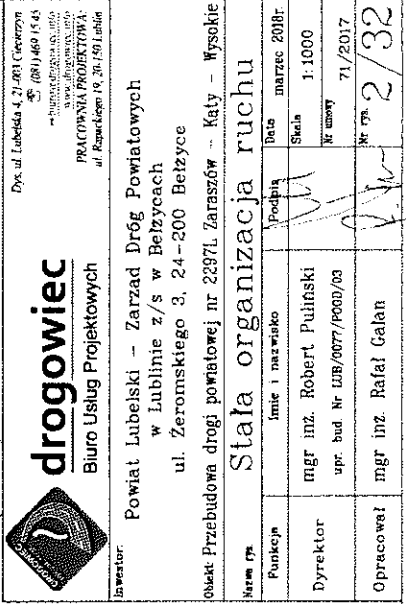 DROGOWIEC
drogowiec
Biuro Usług Projektowych
Dys, ul. Lubelska 4, 21-003 Ciecierzyn
(081) 469 15 45
PRACOWNIA PROJEKTOWA:
ul. Rapackiego 19, 20-150 Lublin
Inwestor:
Powiat Lubelski – Zarzad Dróg Powiatowych
w Lublinie z/s w Bełżycach
ul. Żeromskiego 3, 24-200 Bełżyce
Obiekt: Przebudowa drogi powiatowej nr 2297L Zaraszów – Kąty – Wysokie
Nazwa rys. Stała organizacja ruchu
Funkcja Imie i nazwisko Podpis Data marzec 2018r.
Dyrektor mgr inż. Robert Puliński Skala 1:1000
upr. bud. Nr LUB/0077/POOD/03 Nr umowy 71/2017
Opracował mgr inż. Rafał Galan Nr rys. 2/32